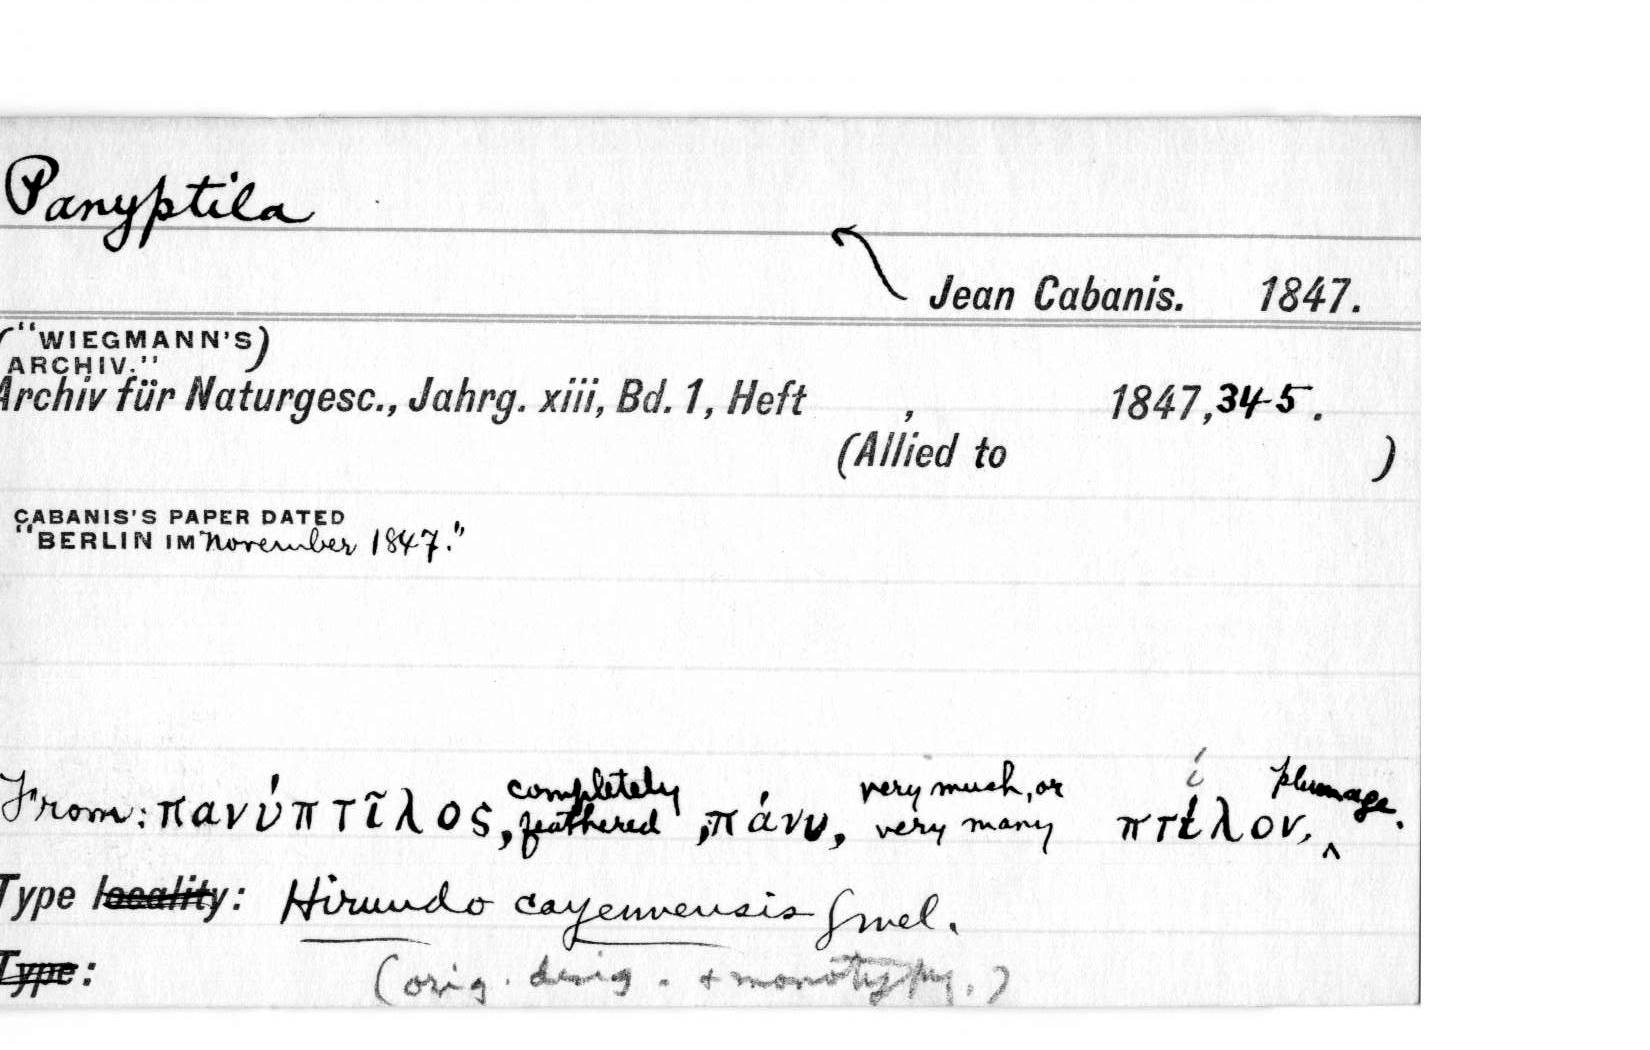 Panyptila
Jean Cabanis. 1847.
("WIEGMANN'S)
ARCHIV."
Archiv für Naturgesc., Jahrg. xiii, Bd. 1, Heft , 1847, 345.
(Allied to )
CABANIS'S PAPER DATED
"BERLIN IM November 1847."
completely very much, or í plumage.
From: πανύπτῖλος, feathered, πάνυ, very many πτέλον, ^
Type locality: Hirundo cayennensis Gmel.
Type: (orig. desig. + monotypy.)